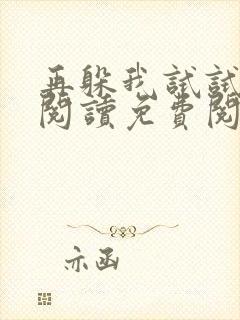 再躲我試試
閱讀免費閱
示函